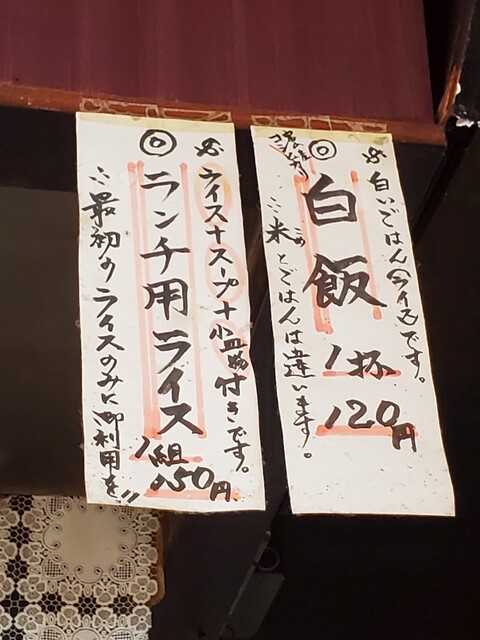 白いごはん(ライス)です。
◎白飯 1杯 120円
米とごはんは違います。
ライス+スープ+小皿物付きです。
◎ランチ用ライス 1組 150円
最初のライスのみに御利用を!!